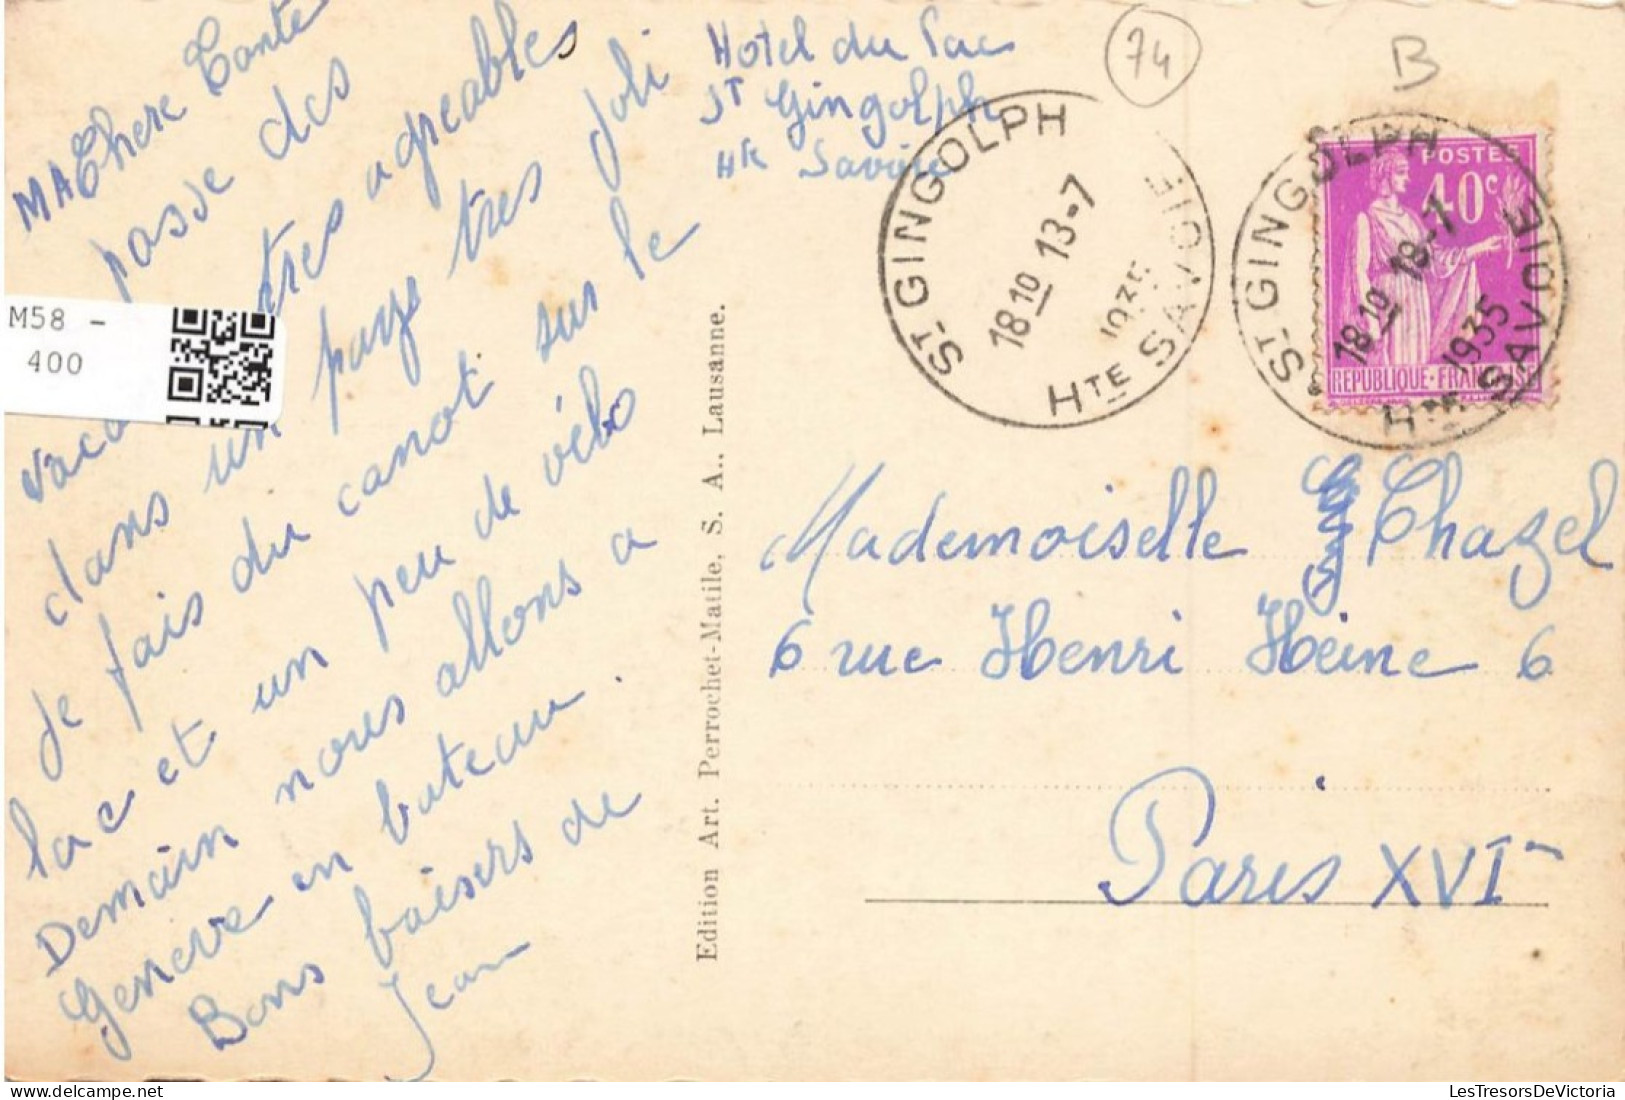 MA Chere Tante
passe des
vaca très agreables
dans un paye tres joli
Je fais du canot sur le
lac et un peu de vélo
Demain nous allons a
Geneve en bateau.
Bons baisers de
Jean
Hotel du Lac
ST Gingolph
Hte Savoie
M58 -
400
Edition Art. Perrochet-Matile, S. A., Lausanne.
74
B
ST GINGOLPH
18 10 13-7
1935
HTE SAVOIE
POSTES
40c
REPUBLIQUE-FRANÇAISE
ST GINGOLPH
18 10
1935
HTE SAVOIE
Mademoiselle G Chazel
6 rue Henri Heine 6
Paris XVI
LesTresorsDeVictoria